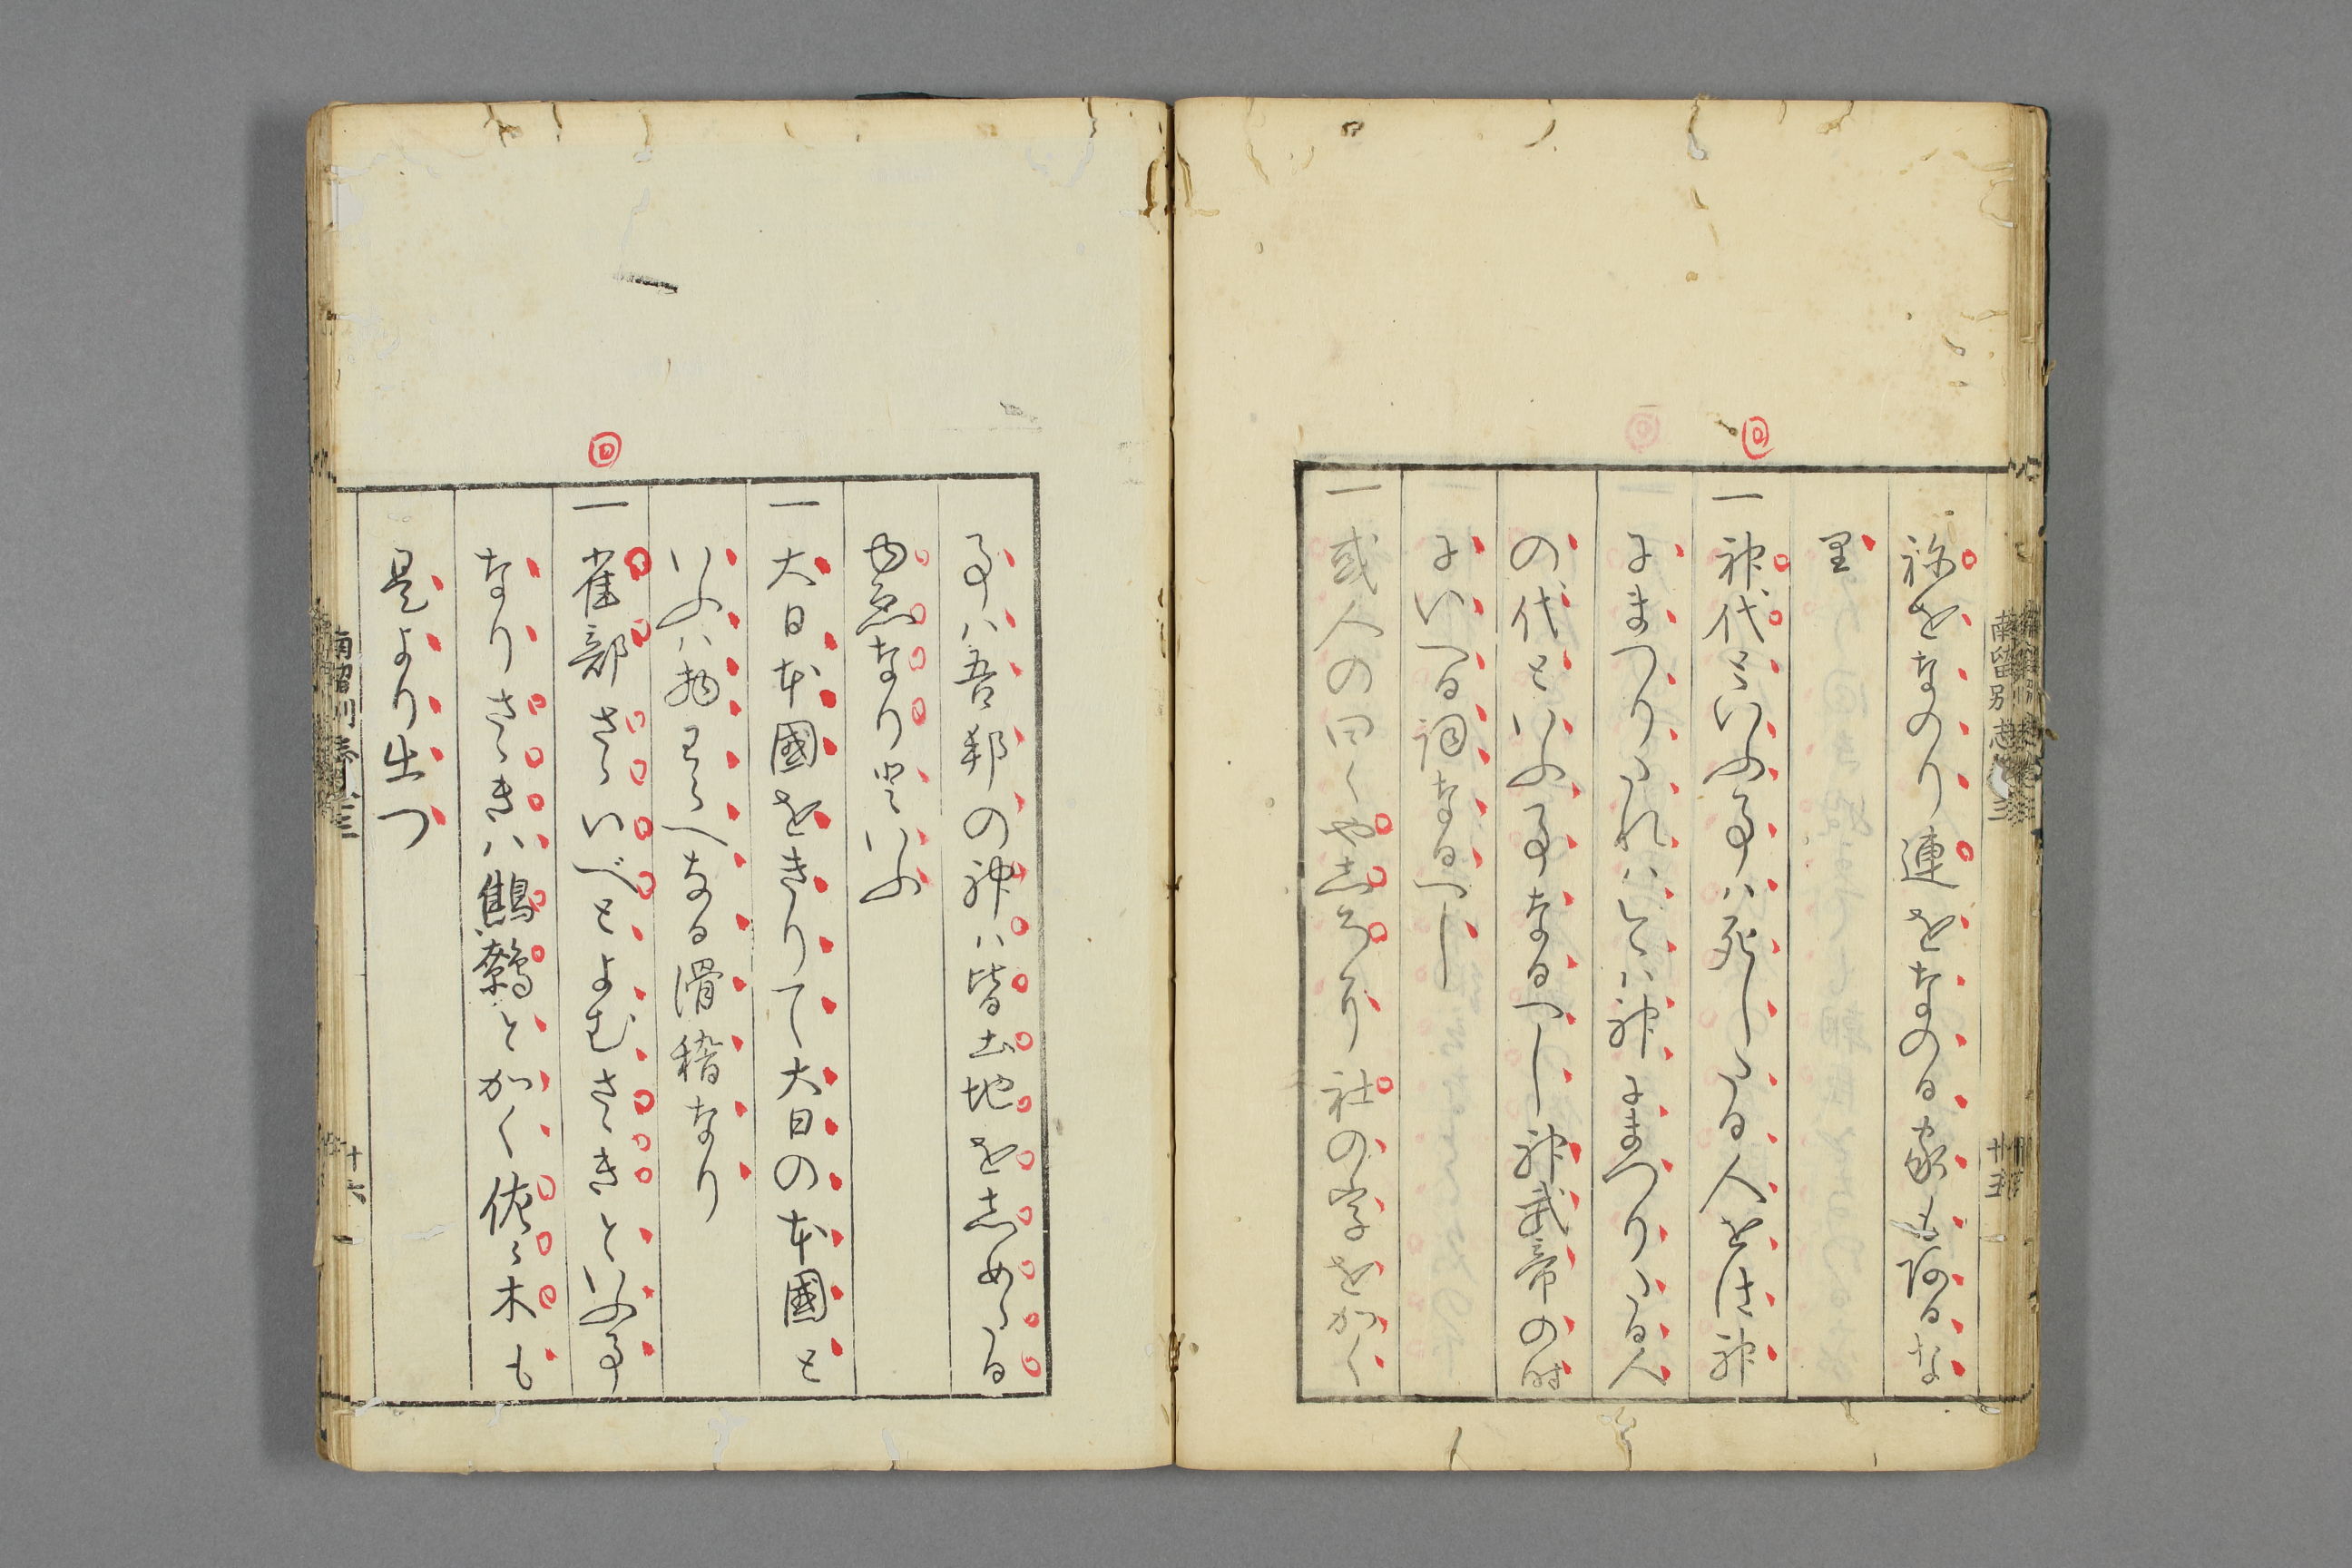 祢をなのり連をなのる家も阿るな
里
一 神代といふ事ハ死しゝる人をは神
にまつりゝれハその神にまつりゝる人
の代といふ事なるべし神武帝の時
にいへる詞なるべし
一 或人の曰くやしろに社の字をかく
事ハ吾邦の神ハ皆土地をしめゝる
ゆゑなりといふ
一 大日本國をきりて大日の本國と
いふハ物わらへなる滑稽なり
一 雀部さゝいべとよむさゝきといふ事
なりさゝきハ鷦鷯とかく佐々木も
是より出つ
南留別志 三
十五
南留別志 三
十六